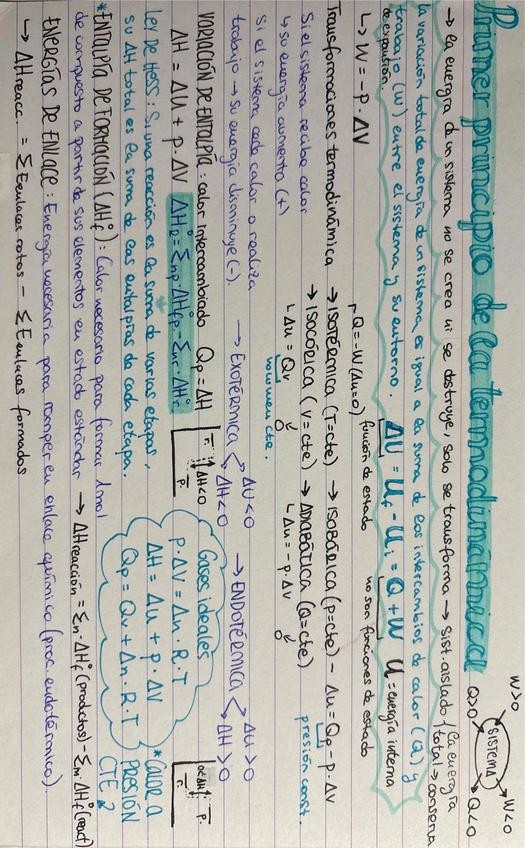 Primer principio de la termodinámica
→ la energía d un sistema no se crea ni se destruye, solo se transforma → sist. aislado (la energía total → conserva
la variación total de energía de un sistema es igual a la suma de los intercambios de calor (Q) y
trabajo (W) entre el sistema y su entorno. ΔU = Uf - Ui = Q + W U = energía interna
de expansión.
↳ W = -p · ΔV
función de estado
no son funciones de estado
W>0
W<0
SISTEMA
Q>0
Q<0
Q = -W (Δu=0)
Transformaciones termodinámica → ISOTÉRMICA (T=cte) → ISOBÁRICA (p=cte) - Δu = Qp - p·ΔV
presión const.
→ ISOCÓRICA (V=cte) → ADIABÁTICA (Q=cte)
↳ Δu = Qv
volumen cte.
↳ Δu = -p·ΔV
Si el sistema recibe calor
↳ su energía aumenta (+)
Si el sistema cede calor o realiza
trabajo → su energía disminuye (-).
→ EXOTÉRMICA < ΔU<0
ΔH<0
→ ENDOTÉRMICA < ΔU>0
ΔH>0
VARIACIÓN DE ENTALPÍA: calor intercambiado Qp = ΔH
ΔH = ΔU + p·ΔV ΔH°R = Σnp·ΔH°fp - Σnr·ΔH°fr
r.
ΔH<0
p.
Gases ideales
p·ΔV = Δn·R·T
ΔH = Δu + p·ΔV
Qp = Qv + Δn·R·T
*CALOR A
PRESIÓN
CTE
ΔH>0
p.
r.
LEY DE HESS: Si una reacción es la suma de varias etapas,
su ΔH total es la suma de las entalpías de cada etapa.
*ENTALPÍA DE FORMACIÓN (ΔH°f): Calor necesario para formar 1mol
de compuesto a partir de sus elementos en estado estándar → ΔHreacción = Σn·ΔH°f (productos) - Σm·ΔH°f (react)
ENERGÍAS DE ENLACE: Energía necesaria para romper en enlace químico (proc. endotérmico)
↳ ΔHreacc. = ΣEenlaces rotos - ΣEenlaces formados